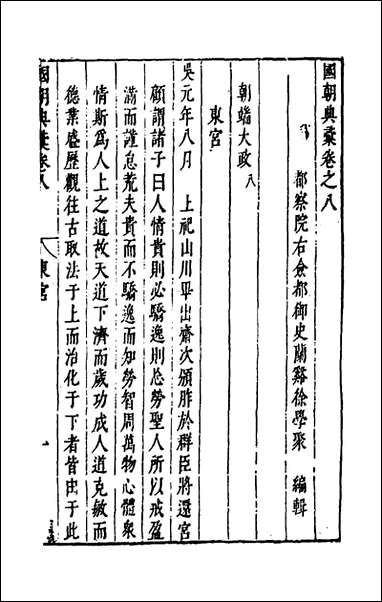 國朝典彙卷之八
都察院右僉都御史蘭谿徐學聚 編輯
朝端大政 八
東宮
吳元年八月 上祀山川畢出齋次頒胙於群臣將還宮
顧謂諸子曰人情貴則必驕逸則忘勞聖人所以戒盈
滿而謹怠荒夫貴而不驕逸而知勞智周萬物心體衆
情斯爲人上之道故天道下濟而歲功成人道克敏而
德業盛歷觀往古取法于上而治化于下者皆由于此
國朝典彙卷八
東宮
一